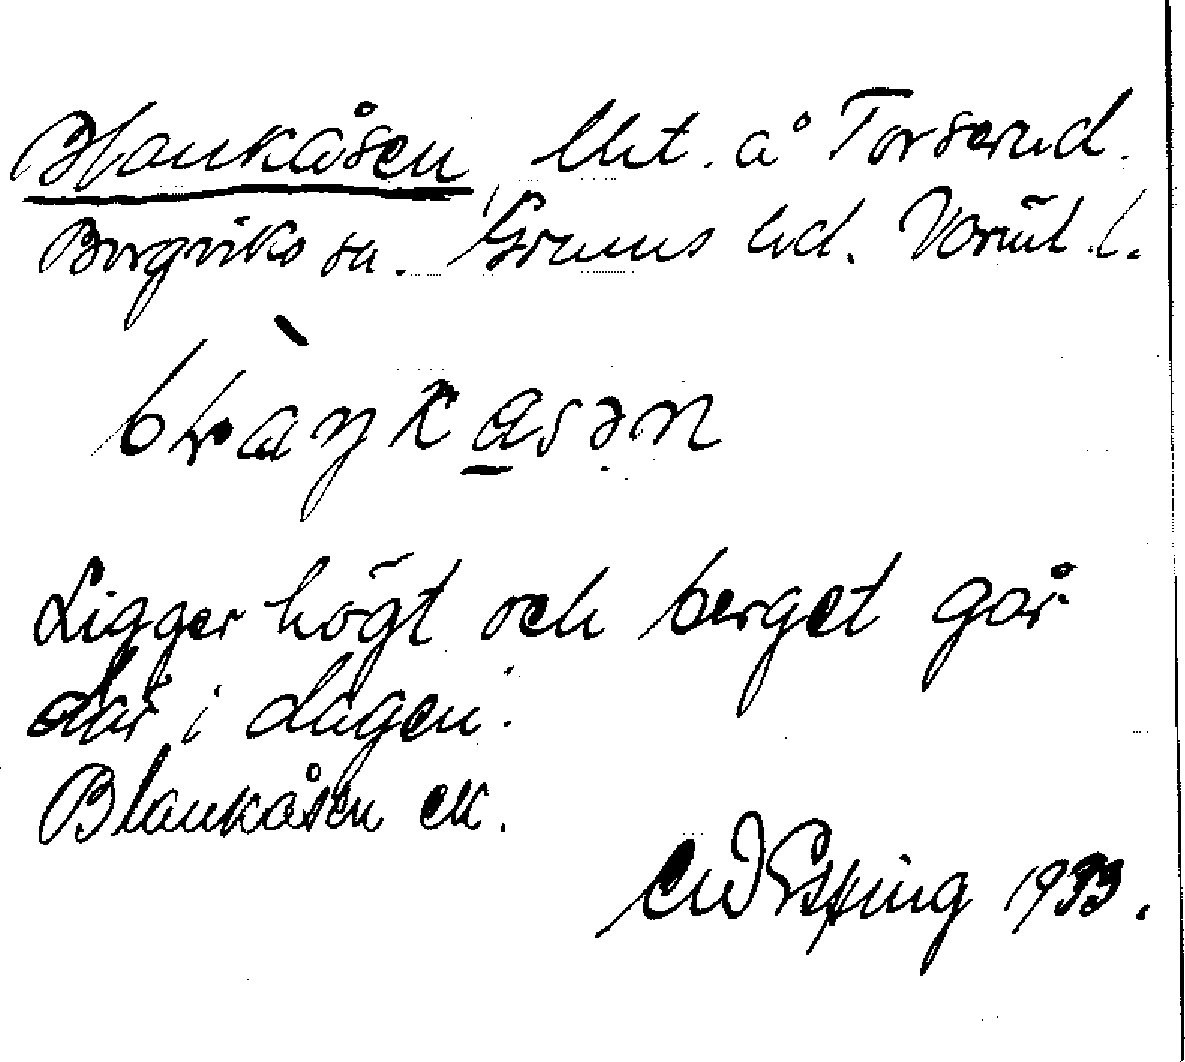 Blankåsen, lht. å Torserud.
Borgviks sn. Grums hd. Värml l.
blàŋkåsən
Ligger högt och berget går
där i dagen.
Blankåsen ek.
Espling 1933.